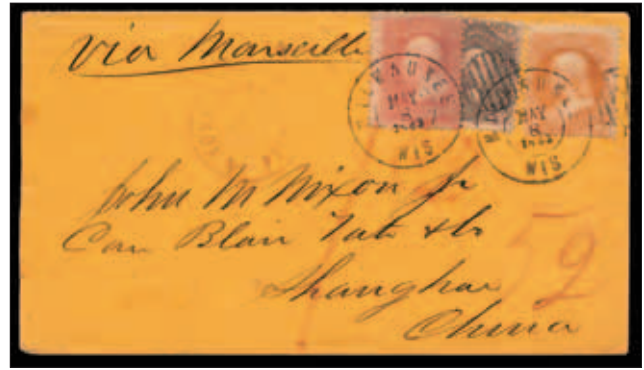 via Marseille
MILWAUKEE
MAY
8
WIS
MILWAUKEE
MAY
8
WIS
John M Nixon Jr
Care Blain Tate & Co
Shanghai
China
52